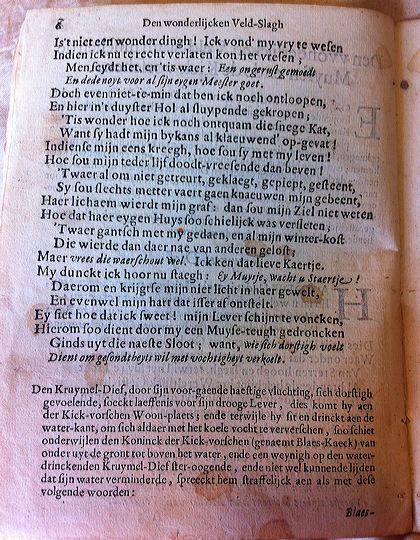 8 Den wonderlijcken Veld-Slagh
Is't niet een wonder dingh! Ick vond' my vry te wesen
Indien ick nu te recht verlaten kon het vresen;
Men seydt het, en 'tis waer: Een ongerust gemoedt
En dede noyt voor al sijn eygen Meester goet.
Doch even niet-te-min dat ben ick noch ontloopen,
En hier in't duyster Hol al sluypende gekropen;
'Tis wonder hoe ick noch ontquam die snege Kat,
Want sy hadt mijn bykans al klaeuwend' op-gevat!
Indiense mijn eens kreegh, hoe sou sy met my leven!
Hoe sou mijn teder lijf doodt-vreesende dan beven!
'Twaer al om niet getreurt, geklaegt, gepiept, gesteent,
Sy sou slechts metter vaert gaen knaeuwen mijn gebeent,
Haer lichaem wierdt mijn graf: dan sou mijn Ziel niet weten
Hoe dat haer eygen Huys soo schielijck was versleten;
'Twaer gantsch met my gedaen, en al mijn winter-kost
Die wierde dan daer nae van anderen gelost;
Maer vrees die waerschout wel. Ick ken dat lieve Kaertje.
My dunckt ick hoor nu staegh: Ey Muysje, wacht u Staertje!
Daerom en krijgtse mijn niet licht in haer gewelt,
En evenwel mijn hart dat isser af ontstelt.
Ey siet hoe dat ick sweet! mijn Lever schijnt te voncken,
Hierom soo dient door my een Muyse-teugh gedroncken
Ginds uyt die naeste Sloot; want, wie sich dorstigh voelt
Dient om gesondtheyts wil met vochtigheyt verkoelt.
Den Kruymel-Dief, door sijn voor-gaende haestige vluchting, sich dorstigh
gevoelende, soeckt laeffenis voor sijn drooge Lever, dies komt hy aen
der Kick-vorschen Woon-plaets; ende terwijle hy sit en drinckt aen de
water-kant, om sich aldaer met het koele vocht te ververschen, soo schiet
onderwijlen den Koninck der Kick-vorschen (genaemt Blaes-Kaeck) van
onder uyt de gront tot boven het water, ende een weynigh op den water-
drinckenden Kruymel-Dief ster-oogende, ende niet wel kunnende lijden
dat sijn water verminderde, spreeckt hem straffelijck aen als met dese
volgende woorden:
Blaes-